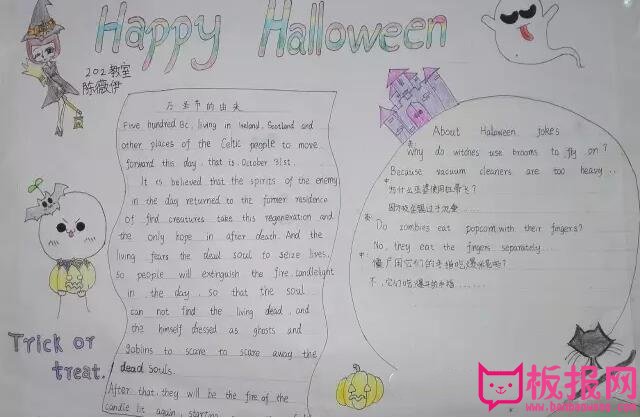 Happy Halloween
202教室
陈薇伊
万圣节的由来
Five hundred Bc, living in Ireland, Scotland and
other places of the Celtic people to move
forward this day, that is October 31st.
It is believed that the spirits of the enemy
in the day returned to the former residence
of find creatures take this regeneration and
the only hope in after death. And the
living fears the dead soul to seize lives,
so people will extinguish the fire, candlelight
in the day, so that the soul
can not find the living dead, and
the himself dressed as ghosts and
goblins to scare to scare away the
dead souls.
After that, they will be the fire of the
candle lit again, starting
About Haloween jokes
Why do witches use brooms to fly on?
Because vacuum cleaners are too heavy...
为什么巫婆使用扫帚飞?
因为吸尘器过于沉重……
Do zombies eat popcorn with their fingers?
No, they eat the fingers separately...
僵尸用它们的手指吃爆米花吗?
不,它们吃手指……
Trick or
treat.
板报网
www.banbaowang.com